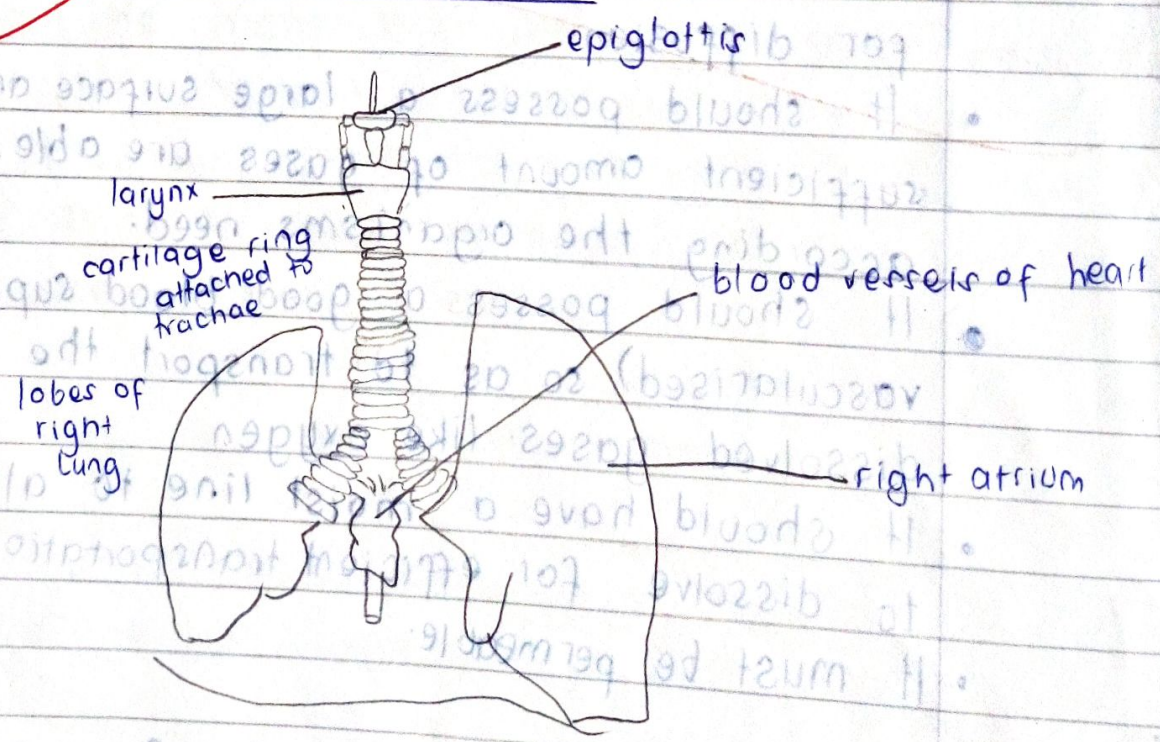 epiglottis
larynx
cartilage ring
attached to
trachae
blood vessels of heart
lobes of
right
lung
right atrium